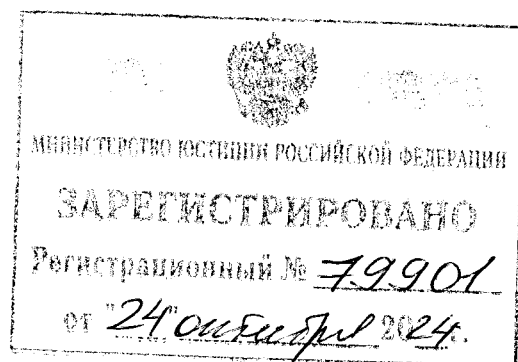 МИНИСТЕРСТВО ЮСТИЦИИ РОССИЙСКОЙ ФЕДЕРАЦИИ
ЗАРЕГИСТРИРОВАНО
Регистрационный № 79901
от "24" октября 2024г.